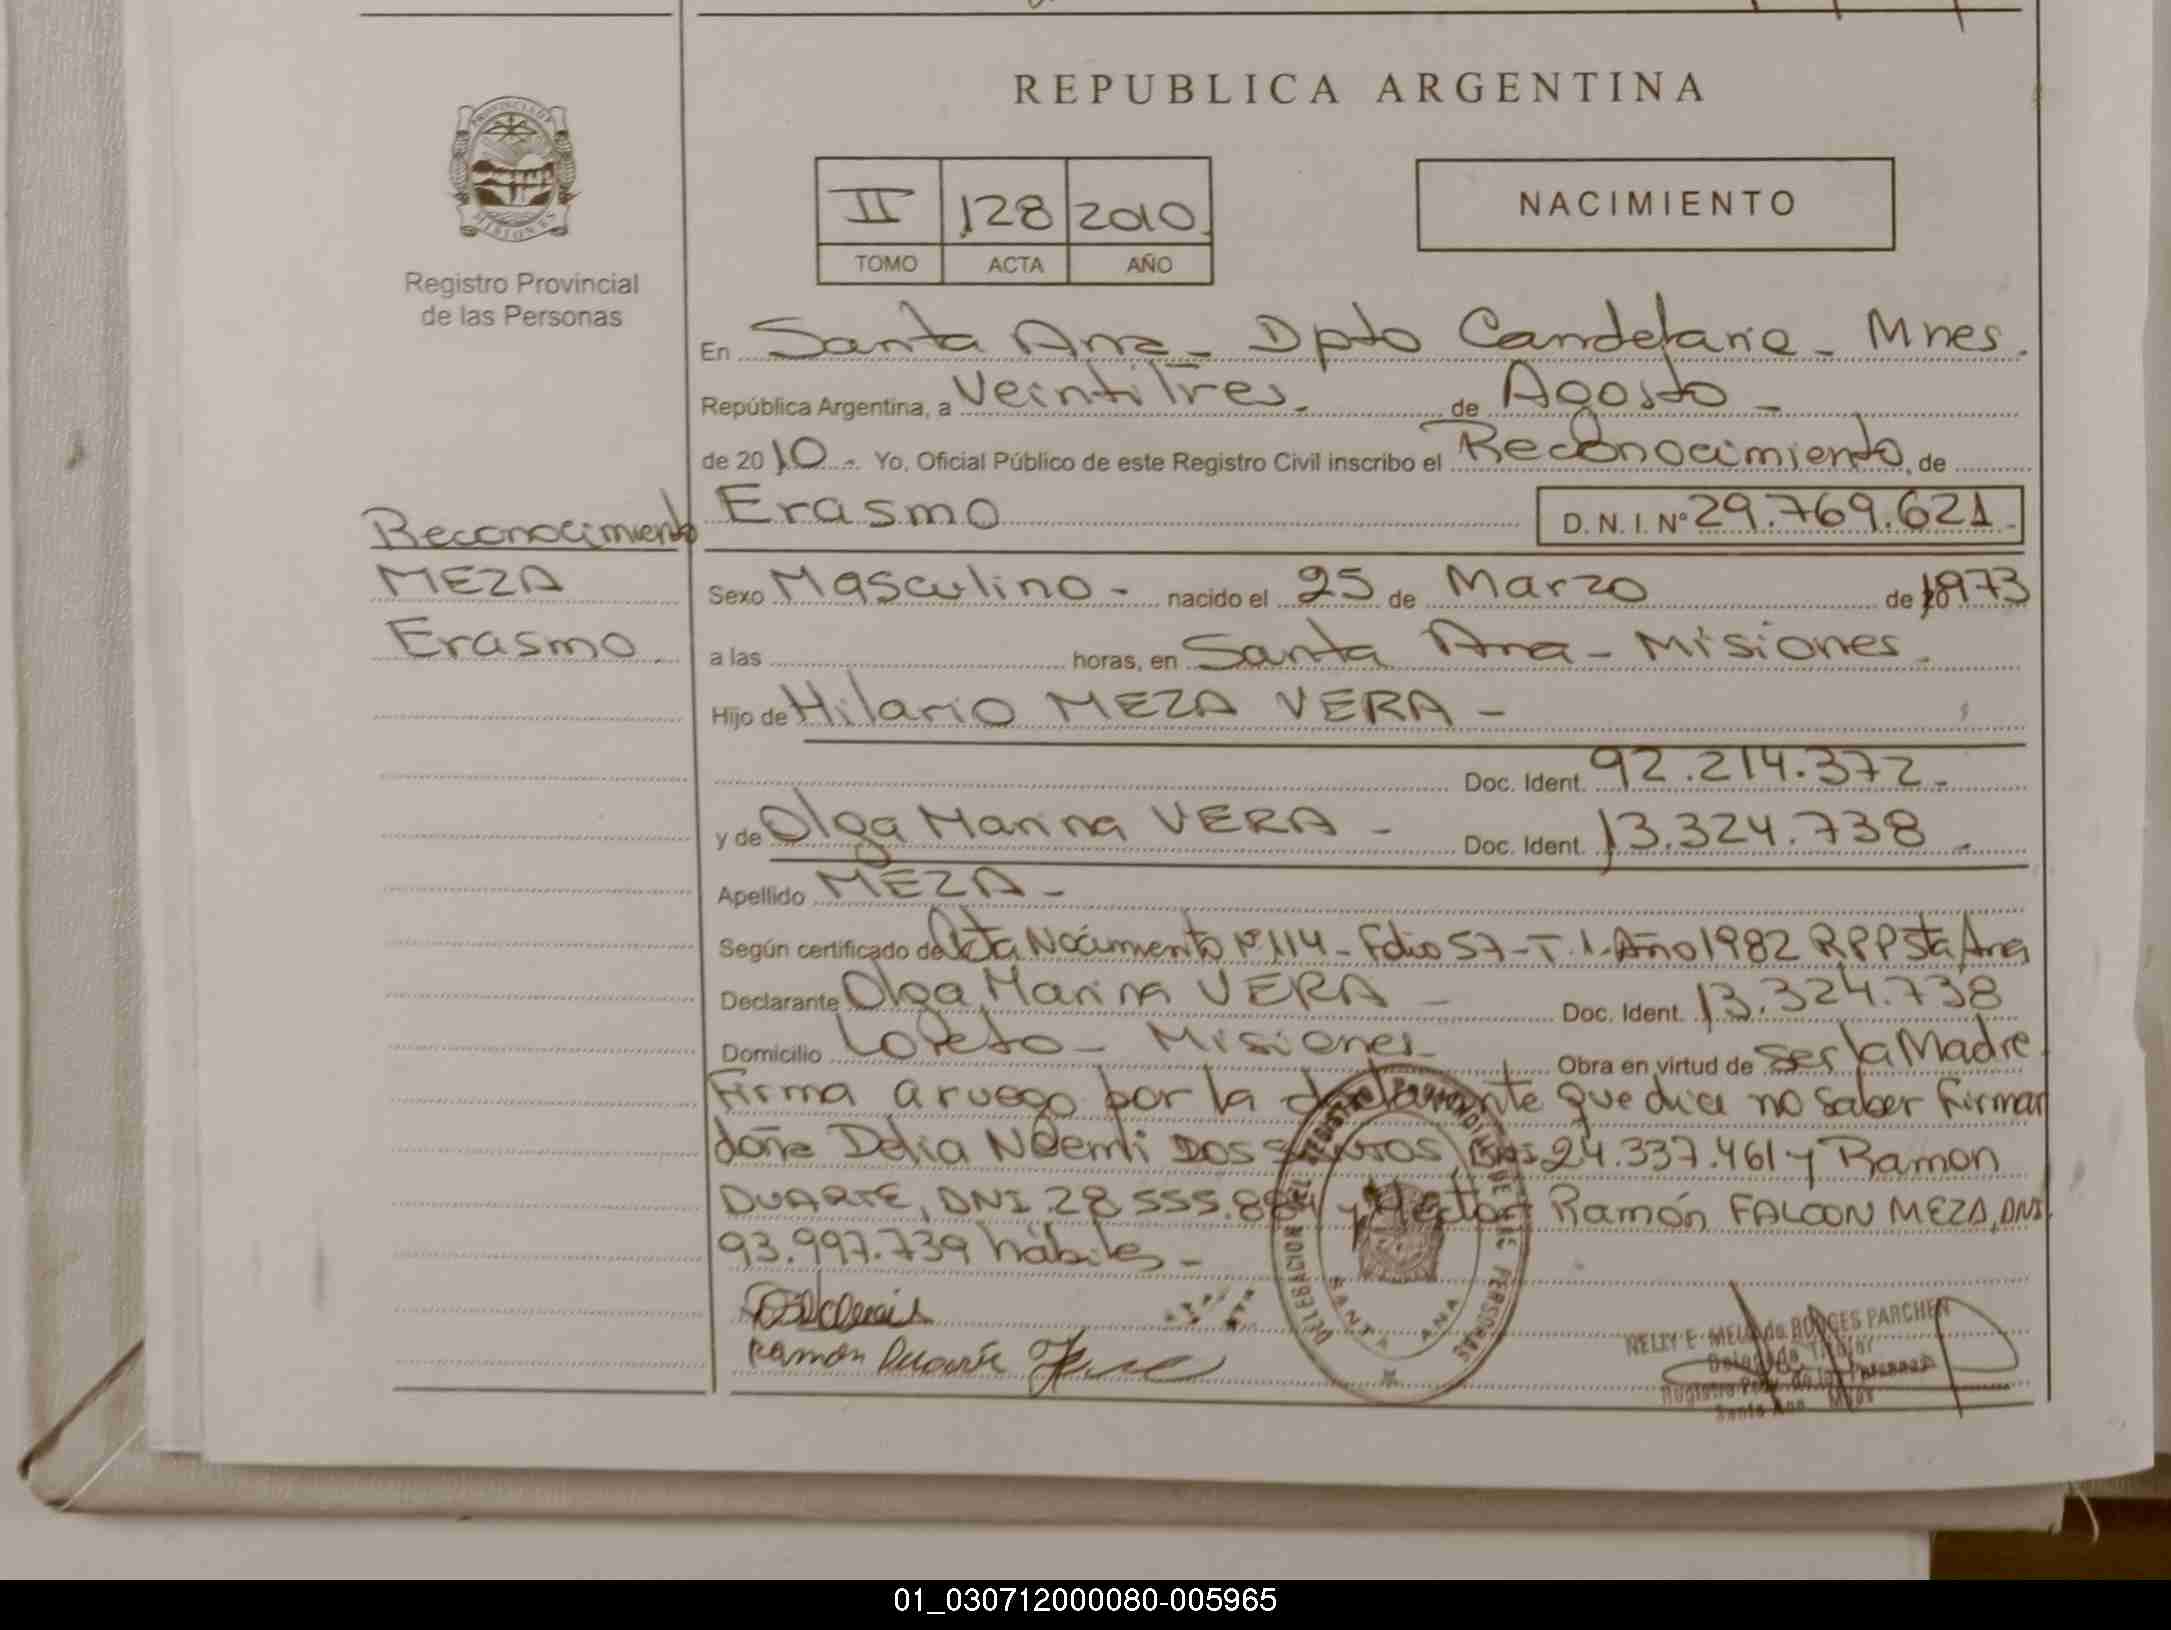 REPUBLICA ARGENTINA
PROVINCIA DE
MISIONES
Registro Provincial
de las Personas
II 128 2010
TOMO ACTA AÑO
NACIMIENTO
En Santa Ana - Dpto Candelaria - Mnes.
República Argentina, a Veintitres - de Agosto -
de 2010 - Yo, Oficial Público de este Registro Civil inscribo el Reconocimiento, de
Erasmo D. N. I. Nº 29.769.621
Reconocimiento
MEZA
Erasmo
Sexo Masculino - nacido el 25 de Marzo de 1973
a las horas, en Santa Ana - Misiones -
Hijo de Hilario MEZA VERA -
Doc. Ident. 92.214.372 -
y de Olga Marina VERA - Doc. Ident. 13.324.738 -
Apellido MEZA -
Según certificado de Acta Nacimiento Nº 114 - Folio 57 - T. 1 - Año 1982 RPP Sta Ana
Declarante Olga Marina VERA - Doc. Ident. 13.324.738
Domicilio Loreto - Misiones - Obra en virtud de ser la Madre
Firma a ruego por la declarante que dice no saber firmar
doña Delia Noemi DOS SANTOS, DNI 24.337.461 y Ramon
DUARTE, DNI 28.555.884 y Hector Ramón FALCON MEZA, DNI
93.997.739 hábiles -
Ramon Duarte
DELEGACION DEL REGISTRO PROVINCIAL DE LAS PERSONAS
SANTA ANA
NELLY E. MELO de BORGES PARCHEN
Delegada Titular
Registro Prov. de las Personas
Santa Ana Mnes
01_030712000080-005965